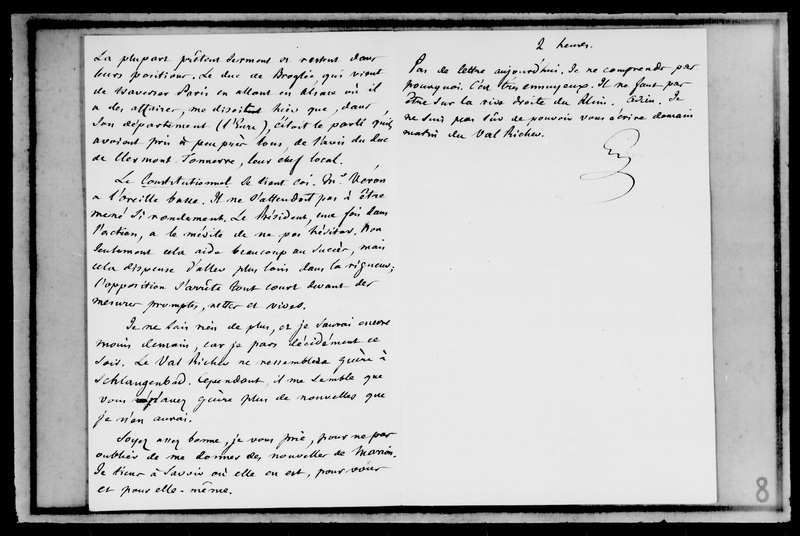 La plupart prêtent serment et restent dans
leurs positions. Le duc de Broglie qui vient
de traverser Paris en allant en Alsace où il
a des affaires, me disoit hier que, dans
son département (l'Eure), c'étoit le parti qu'ils
avoient pris à peu près tous, de l'avis du duc
de Clermont Tonnerre, leur chef local.
Le Constitutionnel se tient coi. Mr Véron
a l'oreille basse. Il ne s'attendoit pas à être
mené si rondement. Le Président, une fois dans
l'action, a le mérite de ne pas hésiter. Non
seulement cela aide beaucoup au succès, mais
cela dispense d'aller plus loin dans la rigueur;
l'opposition s'arrête tout court devant des
mesures promptes, nettes et vives.
Je ne sais rien de plus, et je saurai encore
moins demain, car je pars décidément ce
soir. Le Val Richer ne ressemblera guère à
Schlangenbad. Cependant, il me semble que
vous n'avez guère plus de nouvelles que
je n'en aurai.
Soyez assez bonne, je vous prie, pour ne pas
oublier de me donner des nouvelles de Marion.
Je tiens à savoir où elle en est, pour vous
et pour elle-même.
2 heures.
Pas de lettre aujourd'hui. Je ne comprends pas
pourquoi. C'est très ennuyeux. Il ne faut pas
être sur la rive droite du Rhin. Adieu. Je
ne suis pas sûr de pouvoir vous écrire demain
matin du Val Richer.
8